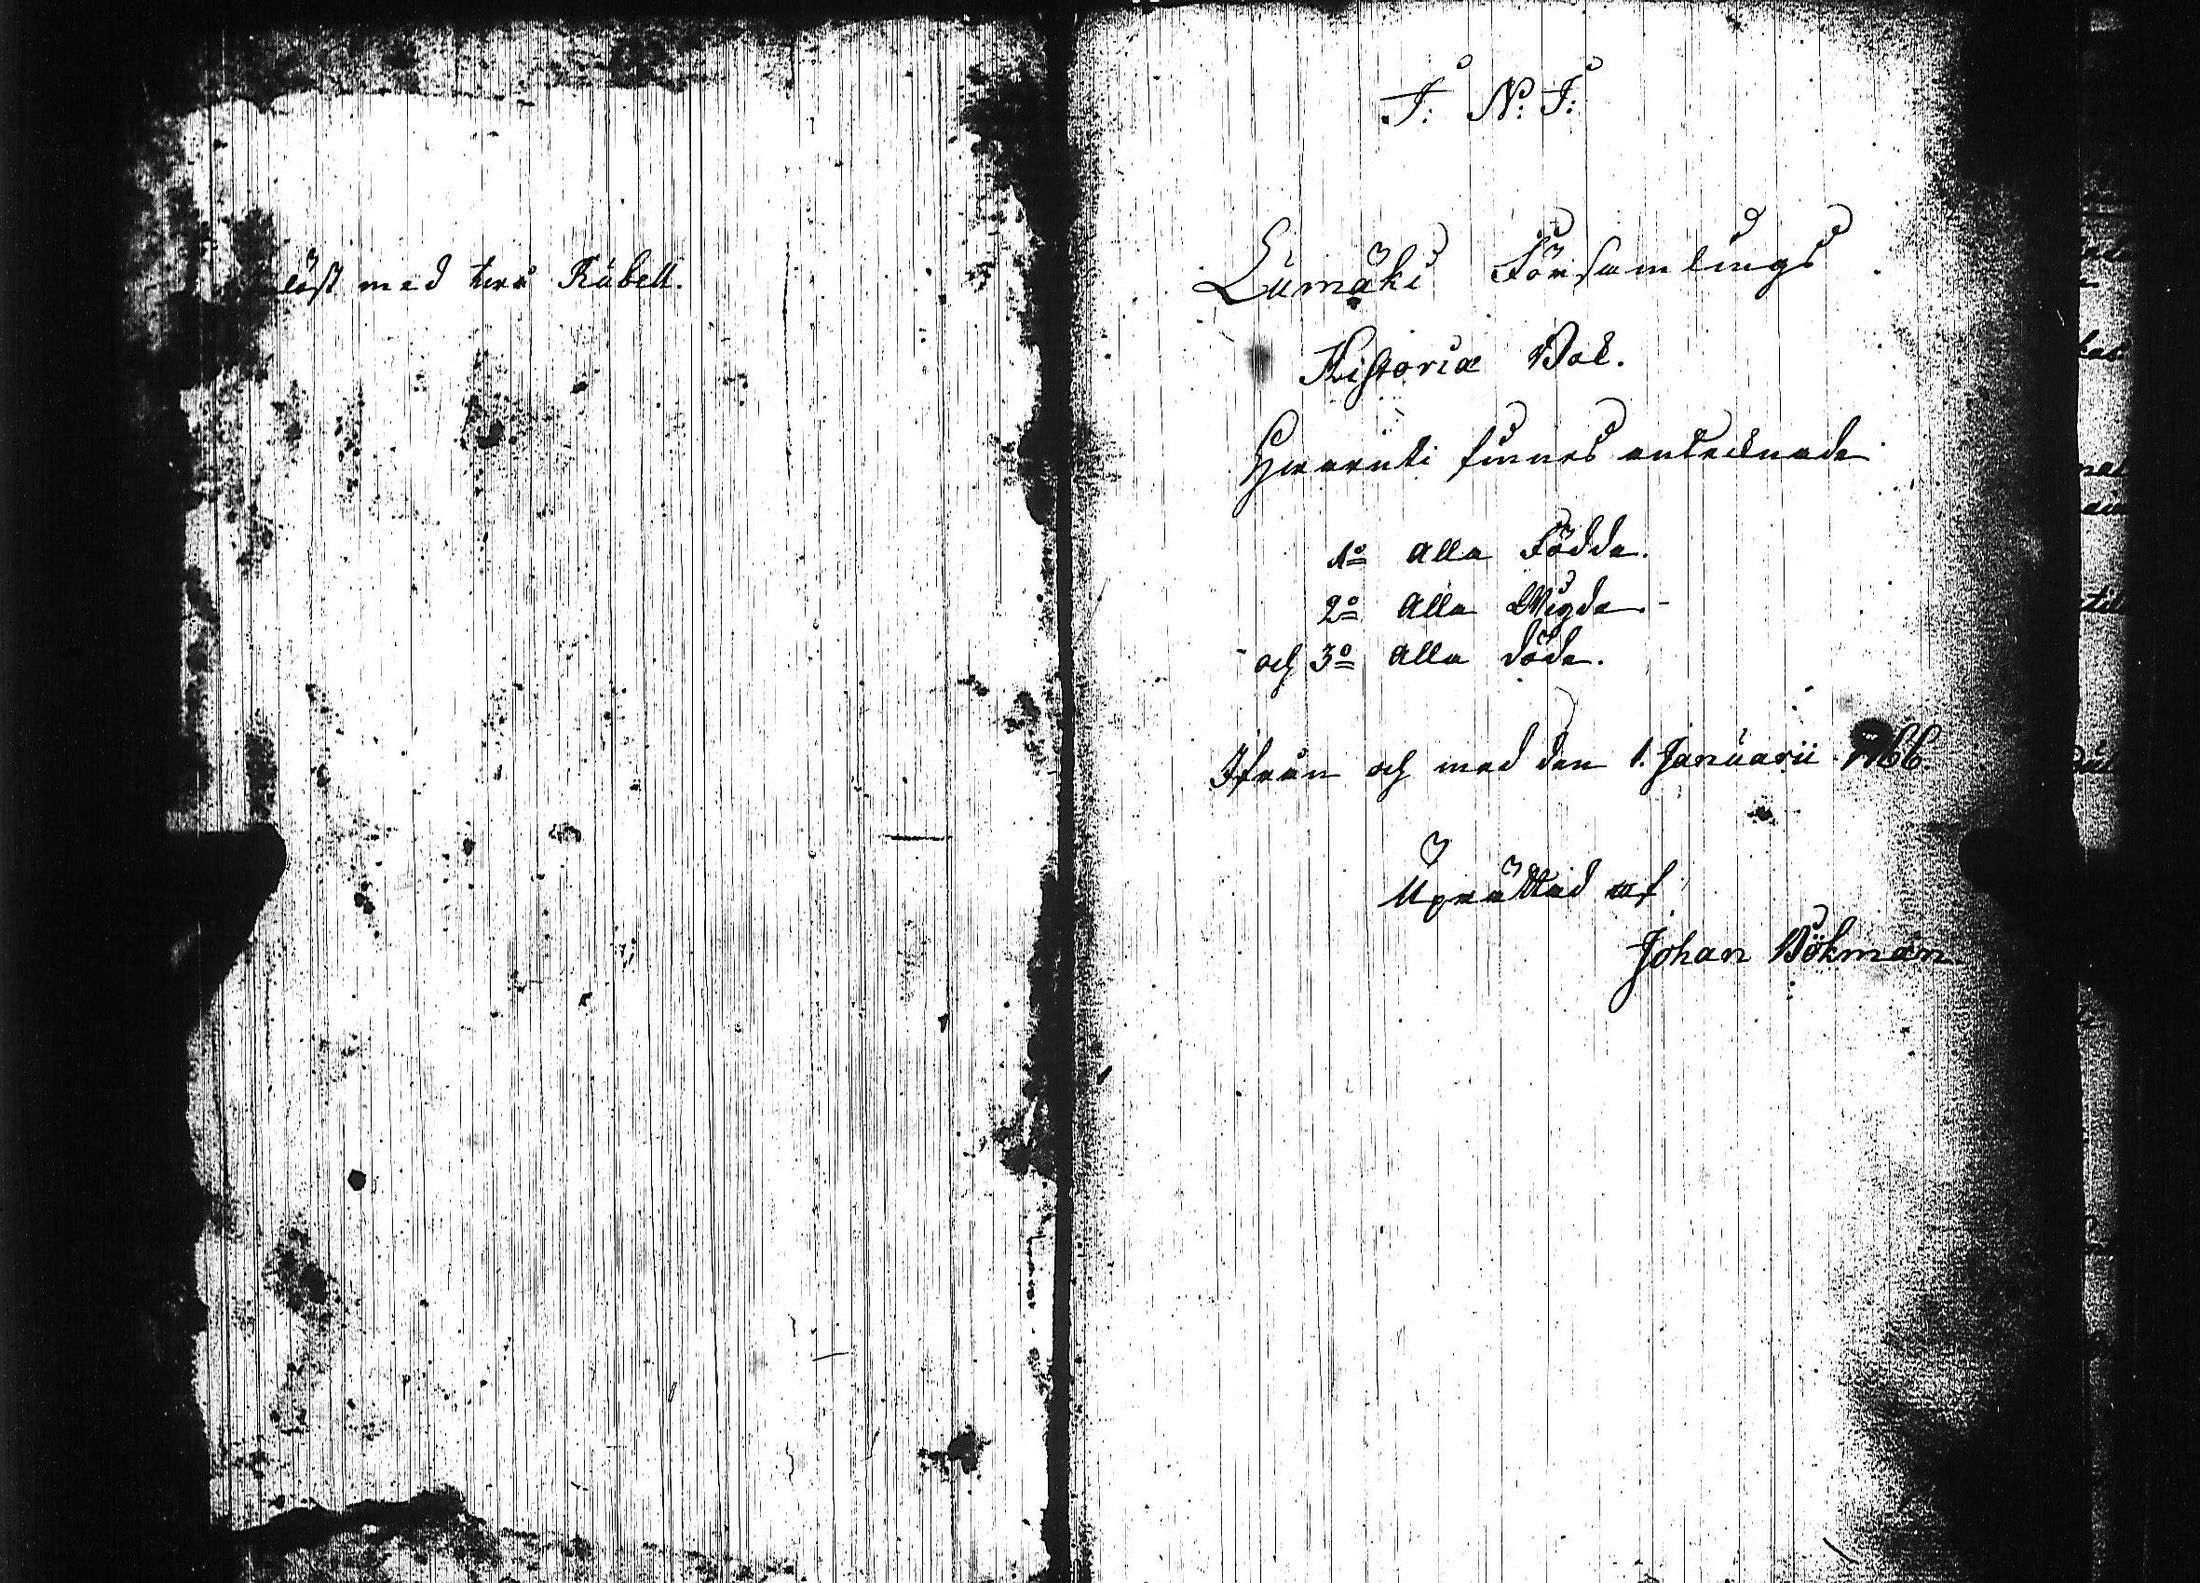 löst med två Rubell.
J. N. J.
Lumäki Församlings
Historiæ Bok.
Hwaruti finnes antecknade
1º Alla Födde.
2º Alla Wigde.
och 3º Alla döde.
Ifrån och med den 1. Januarii 1766.
Uprättad af
Johan Bökman